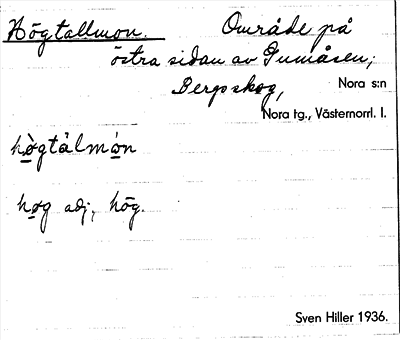 Högtallmon. Område på
östra sidan av Gumåsen;
Bergsskog,
Nora s:n
Nora tg., Västernorrl. l.
hògtàlmón
høg adj, hög.
Sven Hiller 1936.